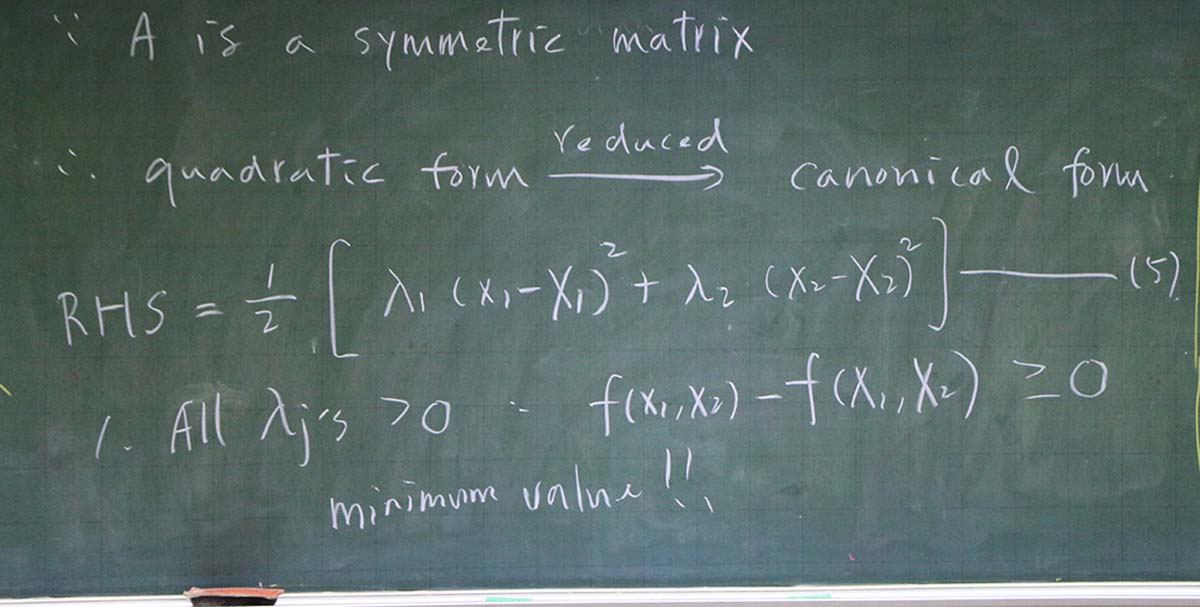 ∵ A is a symmetric matrix
∴ quadratic form reduced → canonical form
RHS = 1/2 [ λ₁ (x₁-X₁)² + λ₂ (x₂-X₂)² ] — (5)
1. All λj's >0 : f(x₁,x₂) - f(X₁,X₂) ≥0
minimum value!!